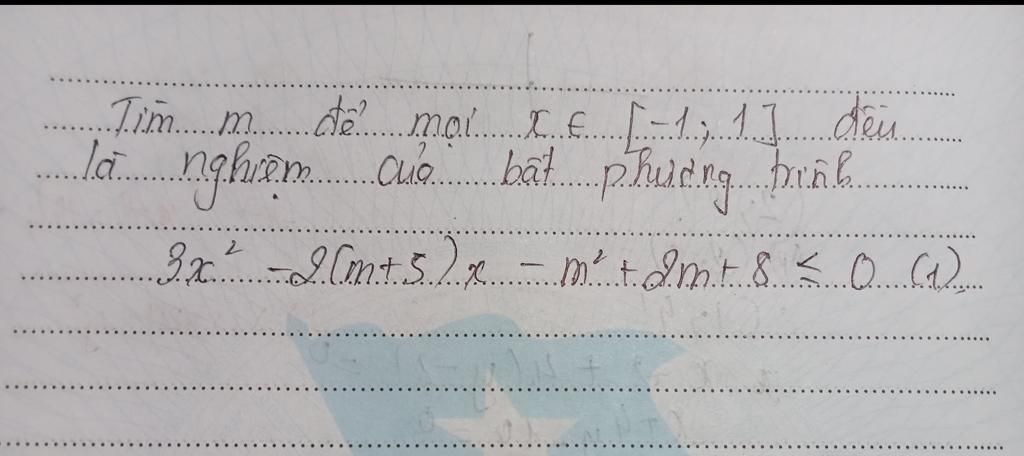 Tìm m để mọi x ∈ [-1; 1] đều
là nghiệm của bất phương trình
3x² - 2(m+5)x - m² + 2m + 8 ≤ 0 (1)